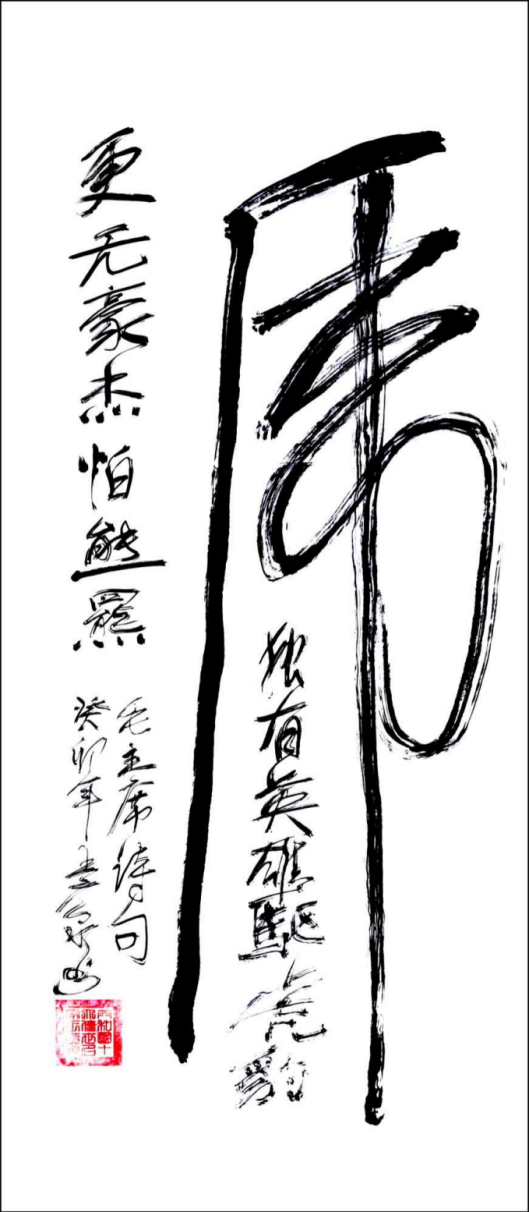 虎
独有英雄驱虎豹
更无豪杰怕熊羆
毛主席诗句
癸卯年